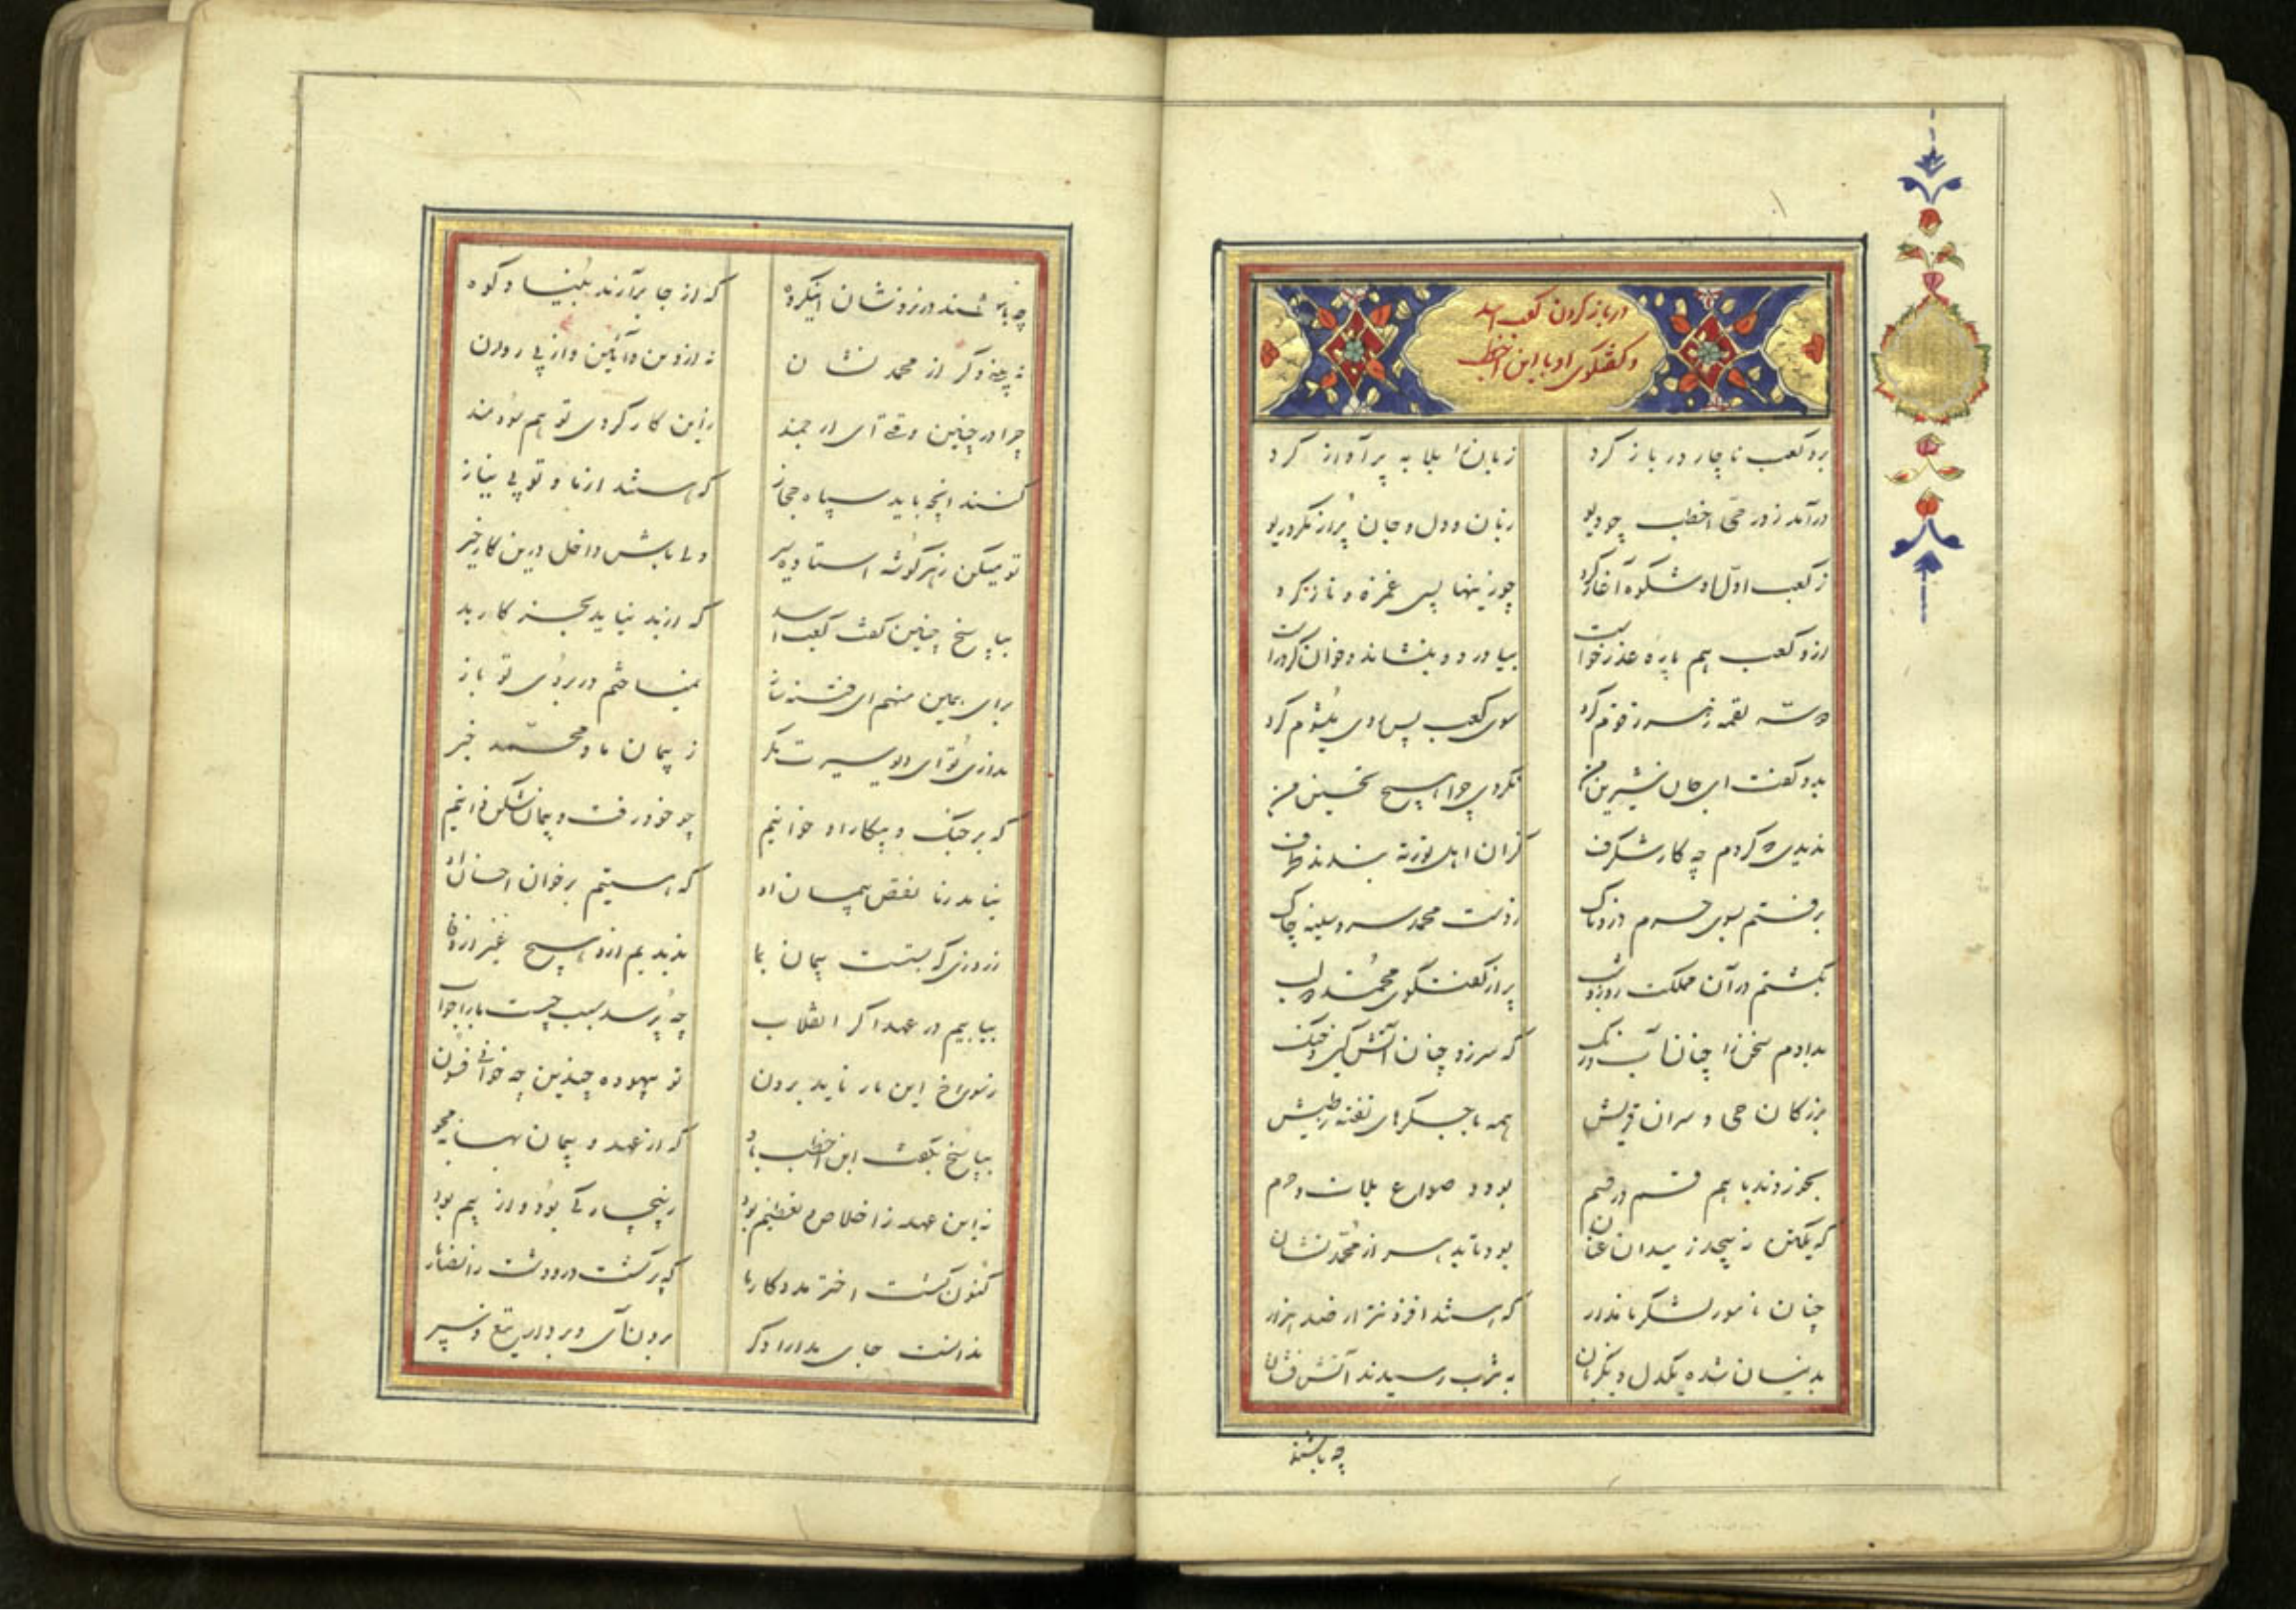 در باز کردن کعب اسد
و گفتگوی او با ابن اخطب
برو کعب ناچار در باز کرد
زبان را بلابه پر آواز کرد
درآمد ز در حی اخطب چو دیو
زبان و دل و جان پر از مکر و ریو
ز کعب اول او شکوه آغاز کرد
چو زینها پسی غمزه و ناز کرد
ازو کعب هم پاره عذر خواست
بیاورد و بنشاند و خوان کرد راست
دو سه لقمه زهر خورد
سوی کعب پس روی میشوم کرد
بدو گفت ای جان شیرین من
نکردی چرا هیچ تحسین من
ندیدی که کردم چه کار شگرف
کزان اهل بندند طرف
برفتم بسوی حرم دردناک
ز دست محمد سر و سینه چاک
بگشتم در آن مملکت روز و شب
پر از گفتگوی محمد دو لب
بدادم سخن را چنان آب و رنگ
که سر زد چنان آتش کین و جنگ
بزرگان حی و سران قریش
همه با جگرهای تفته ز طیش
بخوردند با هم قسم در قسم
بود و صواع بلات و حرم
که یکتن نه پیچد ز میدان عنان
بود تا بد هر از محمد نشان
چنان نامور لشکر نامدار
که هستند افزونتر از صد هزار
بدینسان شده یکدل و یکزبان
به یثرب رسیدند آتش فشان
چه باشند
چه باشند در نزدشان اینگروه
که از جا برآرند بنیاد کوه
نه بینی دگر از محمد نشان
نه از دین و آئین و از پیروان
چرا در چنین وقت ای ارجمند
ازین کار گردی تو هم سودمند
کنند آنچه باید سپاه حجاز
که هستند از ما و تو بی نیاز
تو میکن ز هر گوشه استاده سیر
ولی باش داخل درین کار خیر
بپاسخ چنین گفت کعب اسد
که از بد نیاید بجز کار بد
برای همین منهم ای فتنه ساز
نمیساختم در بروی تو باز
نداری تو ای دیو سیرت مگر
ز پیمان ما و محمد خبر
که بر جنگ و پیکار او خوانیم
چو خود رفت و پیمان شکن دانیم
نیاید ز ما نقض پیمان او
که هستیم بر خوان احسان او
ز روزی که بستست پیمان بما
ندیدیم ازو هیچ غیر از وفا
بیابیم در عهد اگر انقلاب
چه پرسد سبب چیست ما را جواب
ز سوراخ این مار ناید برون
تو بیهوده چندین چه خوانی فسون
بپاسخ بگفت ابن اخطب باو
که از عهد و پیمان بهانه مجو
نه این عهد ز اخلاص و تعظیم بود
ز بیچارگی بود و از بیم بود
کنون گشت اختر مددکار ما
که برگشت دور و دشت ز انصار ما
نداشت جای مدارا دگر
برون آی و بردار تیغ و سپر